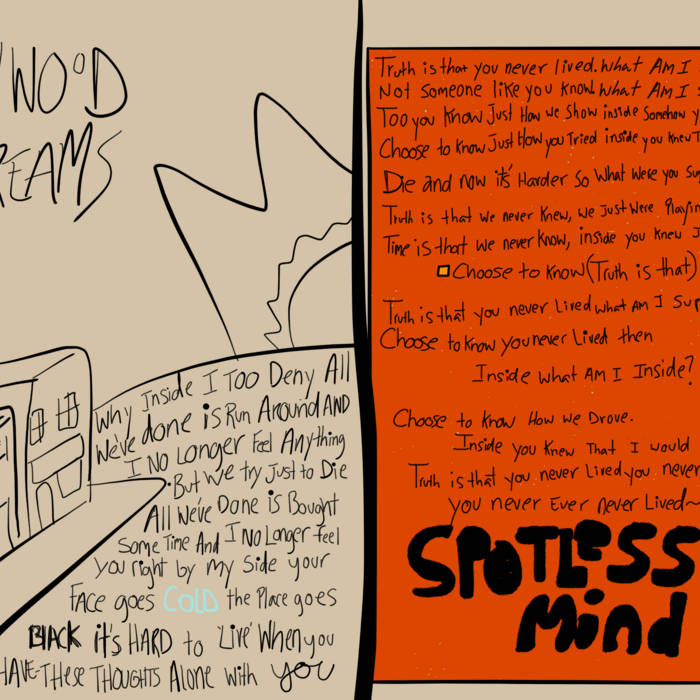 WOOD
REAMS
Why Inside I Too Deny All
We've done is Run Around AND
I No Longer Feel Anything
But We try Just to Die
All We've Done is Bought
Some Time And I No Longer feel
you right by my Side your
FACE goes COLD the Place goes
BLACK it's HARD to 'Live' When you
HAVE THESE THOUGHTS Alone with you
Truth is that you never lived. What AM I
Not Someone like you know. What AM I
Too you Know Just How we Show inside Somehow
Choose to know Just How you Tried inside you knew
Die and now it's Harder So What Were you
Truth is that we never Knew, We Just Were
Time is that we never know, inside you knew
Choose to know (Truth is that)
Truth is that you never Lived what AM I
Choose to know you never Lived then
Inside what AM I Inside?
Choose to know How we Drove.
Inside you Knew That I would
Truth is that you never Lived you never
you never Ever never Lived~
SPOTLESS
Mind